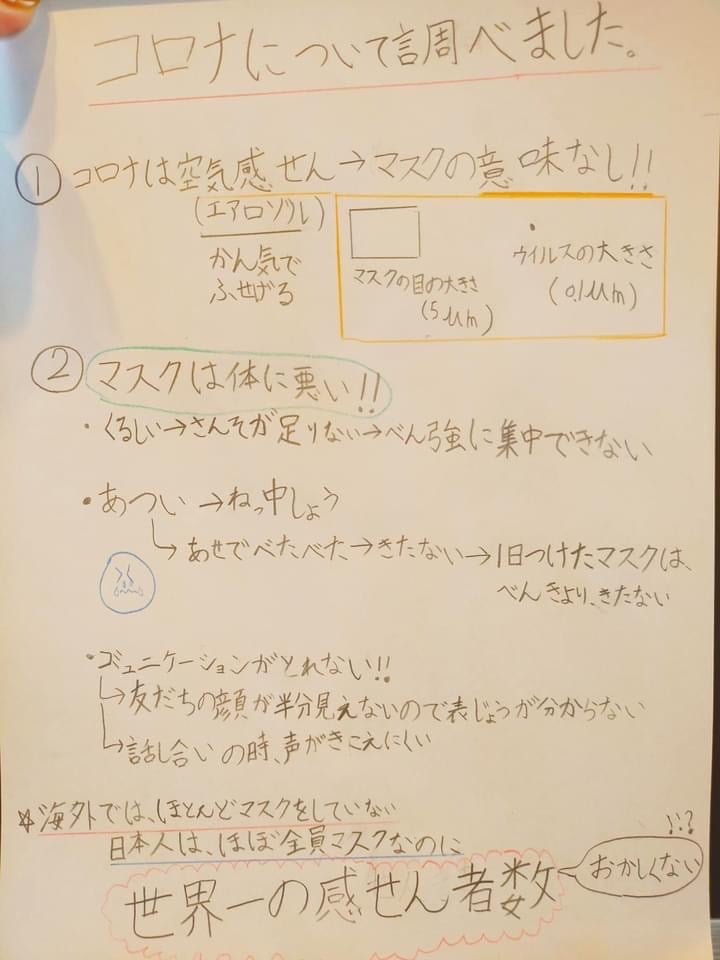 コロナについて調べました。
① コロナは空気感せん→マスクの意味なし!!
(エアロゾル)
かん気で
ふせげる
マスクの目の大きさ
(5μm)
ウイルスの大きさ
(0.1μm)
② マスクは体に悪い!!
・くるしい→さんそが足りない→べん強に集中できない
・あつい→ねっ中しょう
↳あせでべたべた→きたない→1日つけたマスクは、
べんきより、きたない
・コミュニケーションがとれない!!
↳友だちの顔が半分見えないので表じょうが分からない
↳話し合いの時、声がきこえにくい
☆海外では、ほとんどマスクをしていない
日本人は、ほぼ全員マスクなのに
世界一の感せん者数
おかしくない
!:?